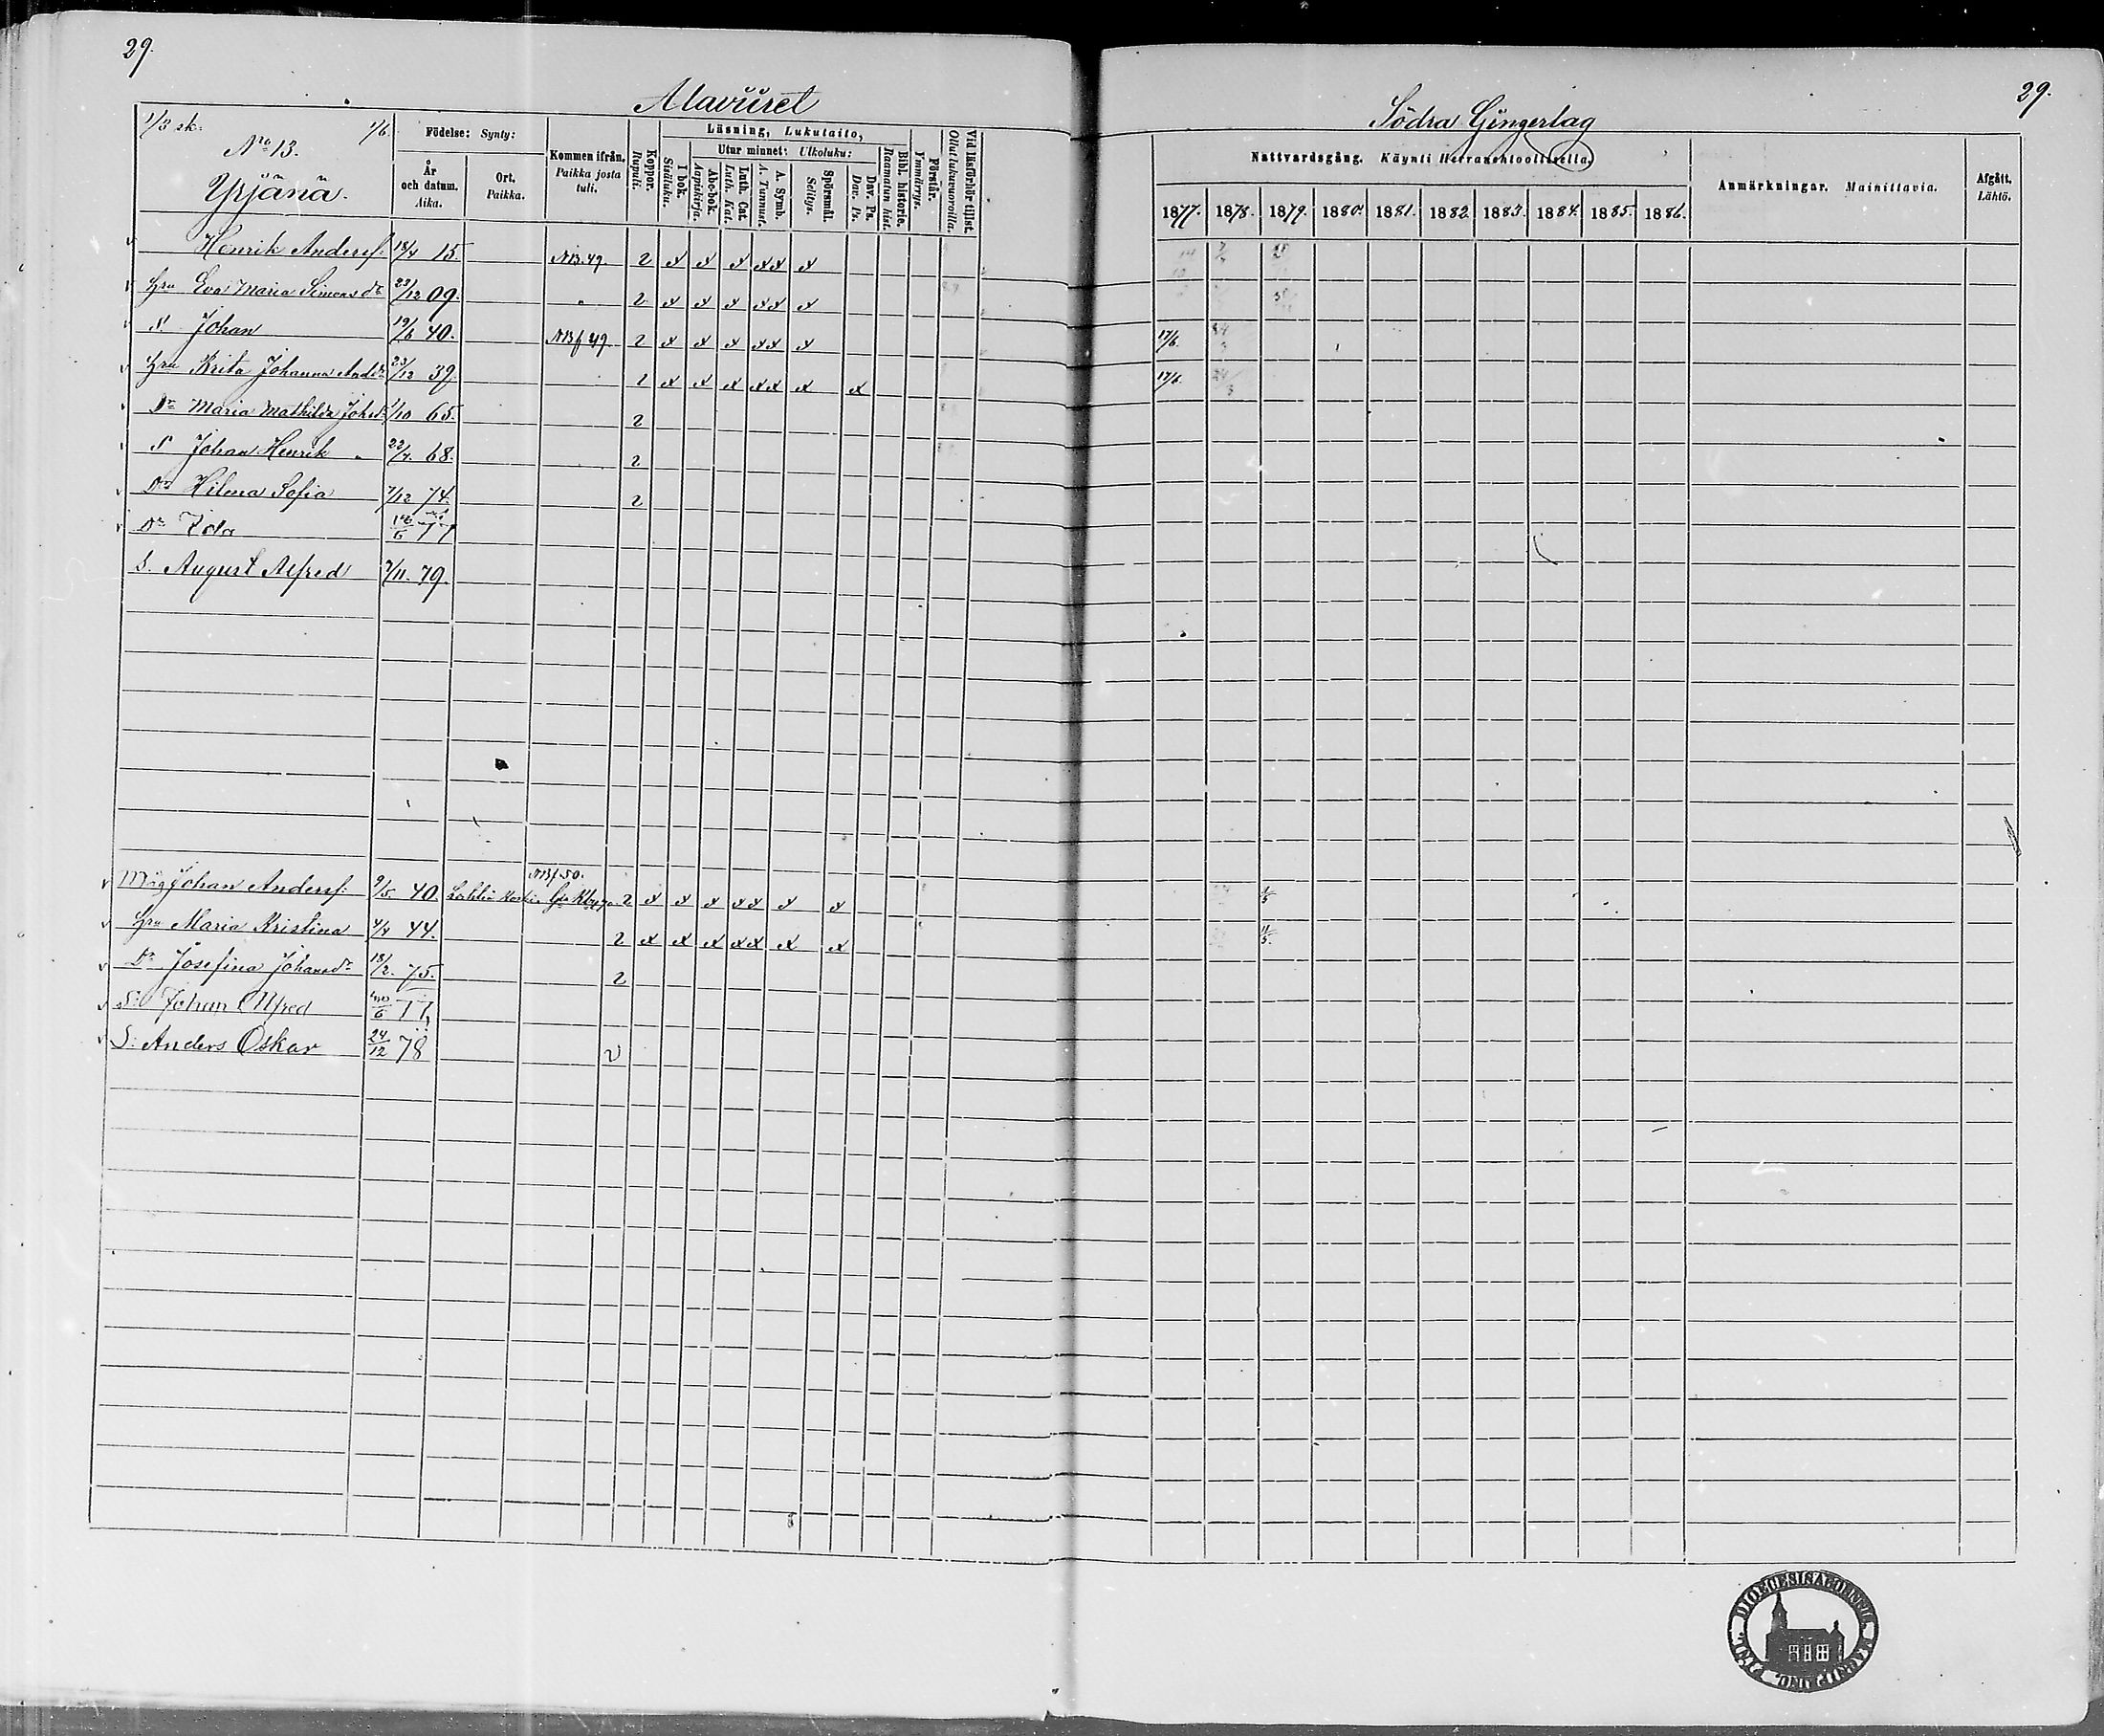 29.
Alavuset
1/3 sk: 1/6.
No 13.
Yrjänä.
Födelse: Synty:
År och datum. Aika.
Ort. Paikka.
Kommen ifrån. Paikka josta tuli.
Koppor. Rupuli.
Läsning, Lukutaito,
I bok. Sisäluku.
Utur minnet: Ulkoluku:
Abc-bok. Aapiskirja.
Luth. Cat. Luth. Kat.
A. Symb. A. Tunnust.
Spörsmål. Selitys.
Dav. Ps. Dav. Ps.
Bibl. historie. Raamatun hist.
Förstår. Ymmärrys.
Vid läsförhör tillst. Ollut lukuvuoroilla.
Henrik Andersf. 18/4 15. NB. 49. 2 x x x xx x
Hru Eva Maria Simonsdr 23/12 09. " 2 x x x xx x
S. Johan 19/6 40. NB f 49 2 x x x xx x
Hru Brita Johanna Andr 23/12 39. 2 x x x xx x x
Dr Maria Mathilda Johsdr 1/10 65. 2
S Johan Henrik " 22/4. 68. 2
Dr Hilma Sofia 7/12 74. 2
Dr Ida 6 77
S. August Alfred 7/11. 79.
NB f 50.
Måg Johan Andersf: 9/5 40. 2 x x x xx x x
Hru Maria Kristina 4/4 44. 2 x x x xx x x
Dr Josefina Johansdr 18/2. 75. 2
S: Johan Alfred 6 77,
S: Anders Oskar 24/12 78 v
29.
Södra Gingerlag
Nattvardsgång. Käynti Herranehtoollisella.
Anmärkningar. Mainittavia.
Afgått. Lähtö.
1877. 1878. 1879. 1880. 1881. 1882. 1883. 1884. 1885. 1886.
17/6.
17/6.
11/5.